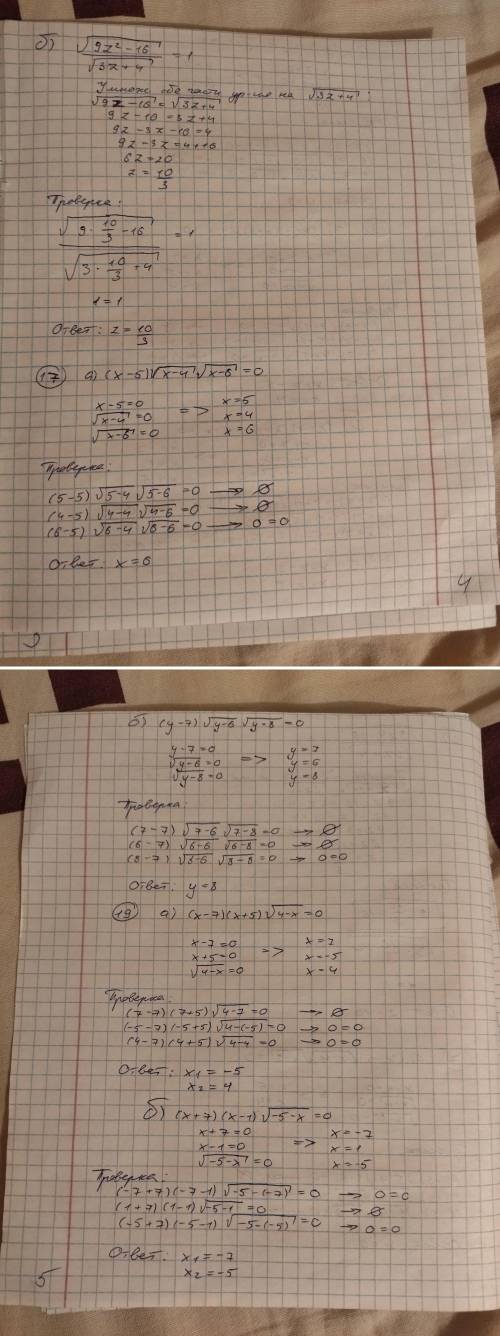 б) √(9z² - 16) / √(3z + 4) = 1
Умнож. обе части ур-ие на √(3z + 4) :
√(9z - 16) = √(3z + 4)
9z - 16 = 3z + 4
9z - 3z - 16 = 4
9z - 3z = 4 + 16
6z = 20
z = 10/3
Проверка:
√(9 · 10/3 - 16) / √(3 · 10/3 + 4) = 1
1 = 1
Ответ: z = 10/3
17 а) (x - 5)√(x - 4) √(x - 6) = 0
x - 5 = 0 => x = 5
√(x - 4) = 0 x = 4
√(x - 6) = 0 x = 6
Проверка:
(5 - 5) √(5 - 4) √(5 - 6) = 0 → ∅
(4 - 5) √(4 - 4) √(4 - 6) = 0 → ∅
(6 - 5) √(6 - 4) √(6 - 6) = 0 → 0 = 0
Ответ: x = 6
4
б) (y - 7) √(y - 6) √(y - 8) = 0
y - 7 = 0 => y = 7
√(y - 6) = 0 y = 6
√(y - 8) = 0 y = 8
Проверка:
(7 - 7) √(7 - 6) √(7 - 8) = 0 → ∅
(6 - 7) √(6 - 6) √(6 - 8) = 0 → ∅
(8 - 7) √(8 - 6) √(8 - 8) = 0 → 0 = 0
Ответ: y = 8
19 а) (x - 7)(x + 5)√(4 - x) = 0
x - 7 = 0 => x = 7
x + 5 = 0 x = -5
√(4 - x) = 0 x = 4
Проверка:
(7 - 7)(7 + 5)√(4 - 7) = 0 → ∅
(-5 - 7)(-5 + 5)√(4 - (-5)) = 0 → 0 = 0
(4 - 7)(4 + 5)√(4 - 4) = 0 → 0 = 0
Ответ: x₁ = -5
x₂ = 4
б) (x + 7)(x - 1)√(-5 - x) = 0
x + 7 = 0 => x = -7
x - 1 = 0 x = 1
√(-5 - x) = 0 x = -5
Проверка:
(-7 + 7)(-7 - 1)√(-5 - (-7)) = 0 → 0 = 0
(1 + 7)(1 - 1)√(-5 - 1) = 0 → ∅
(-5 + 7)(-5 - 1)√(-5 - (-5)) = 0 → 0 = 0
Ответ: x₁ = -7
x₂ = -5
5